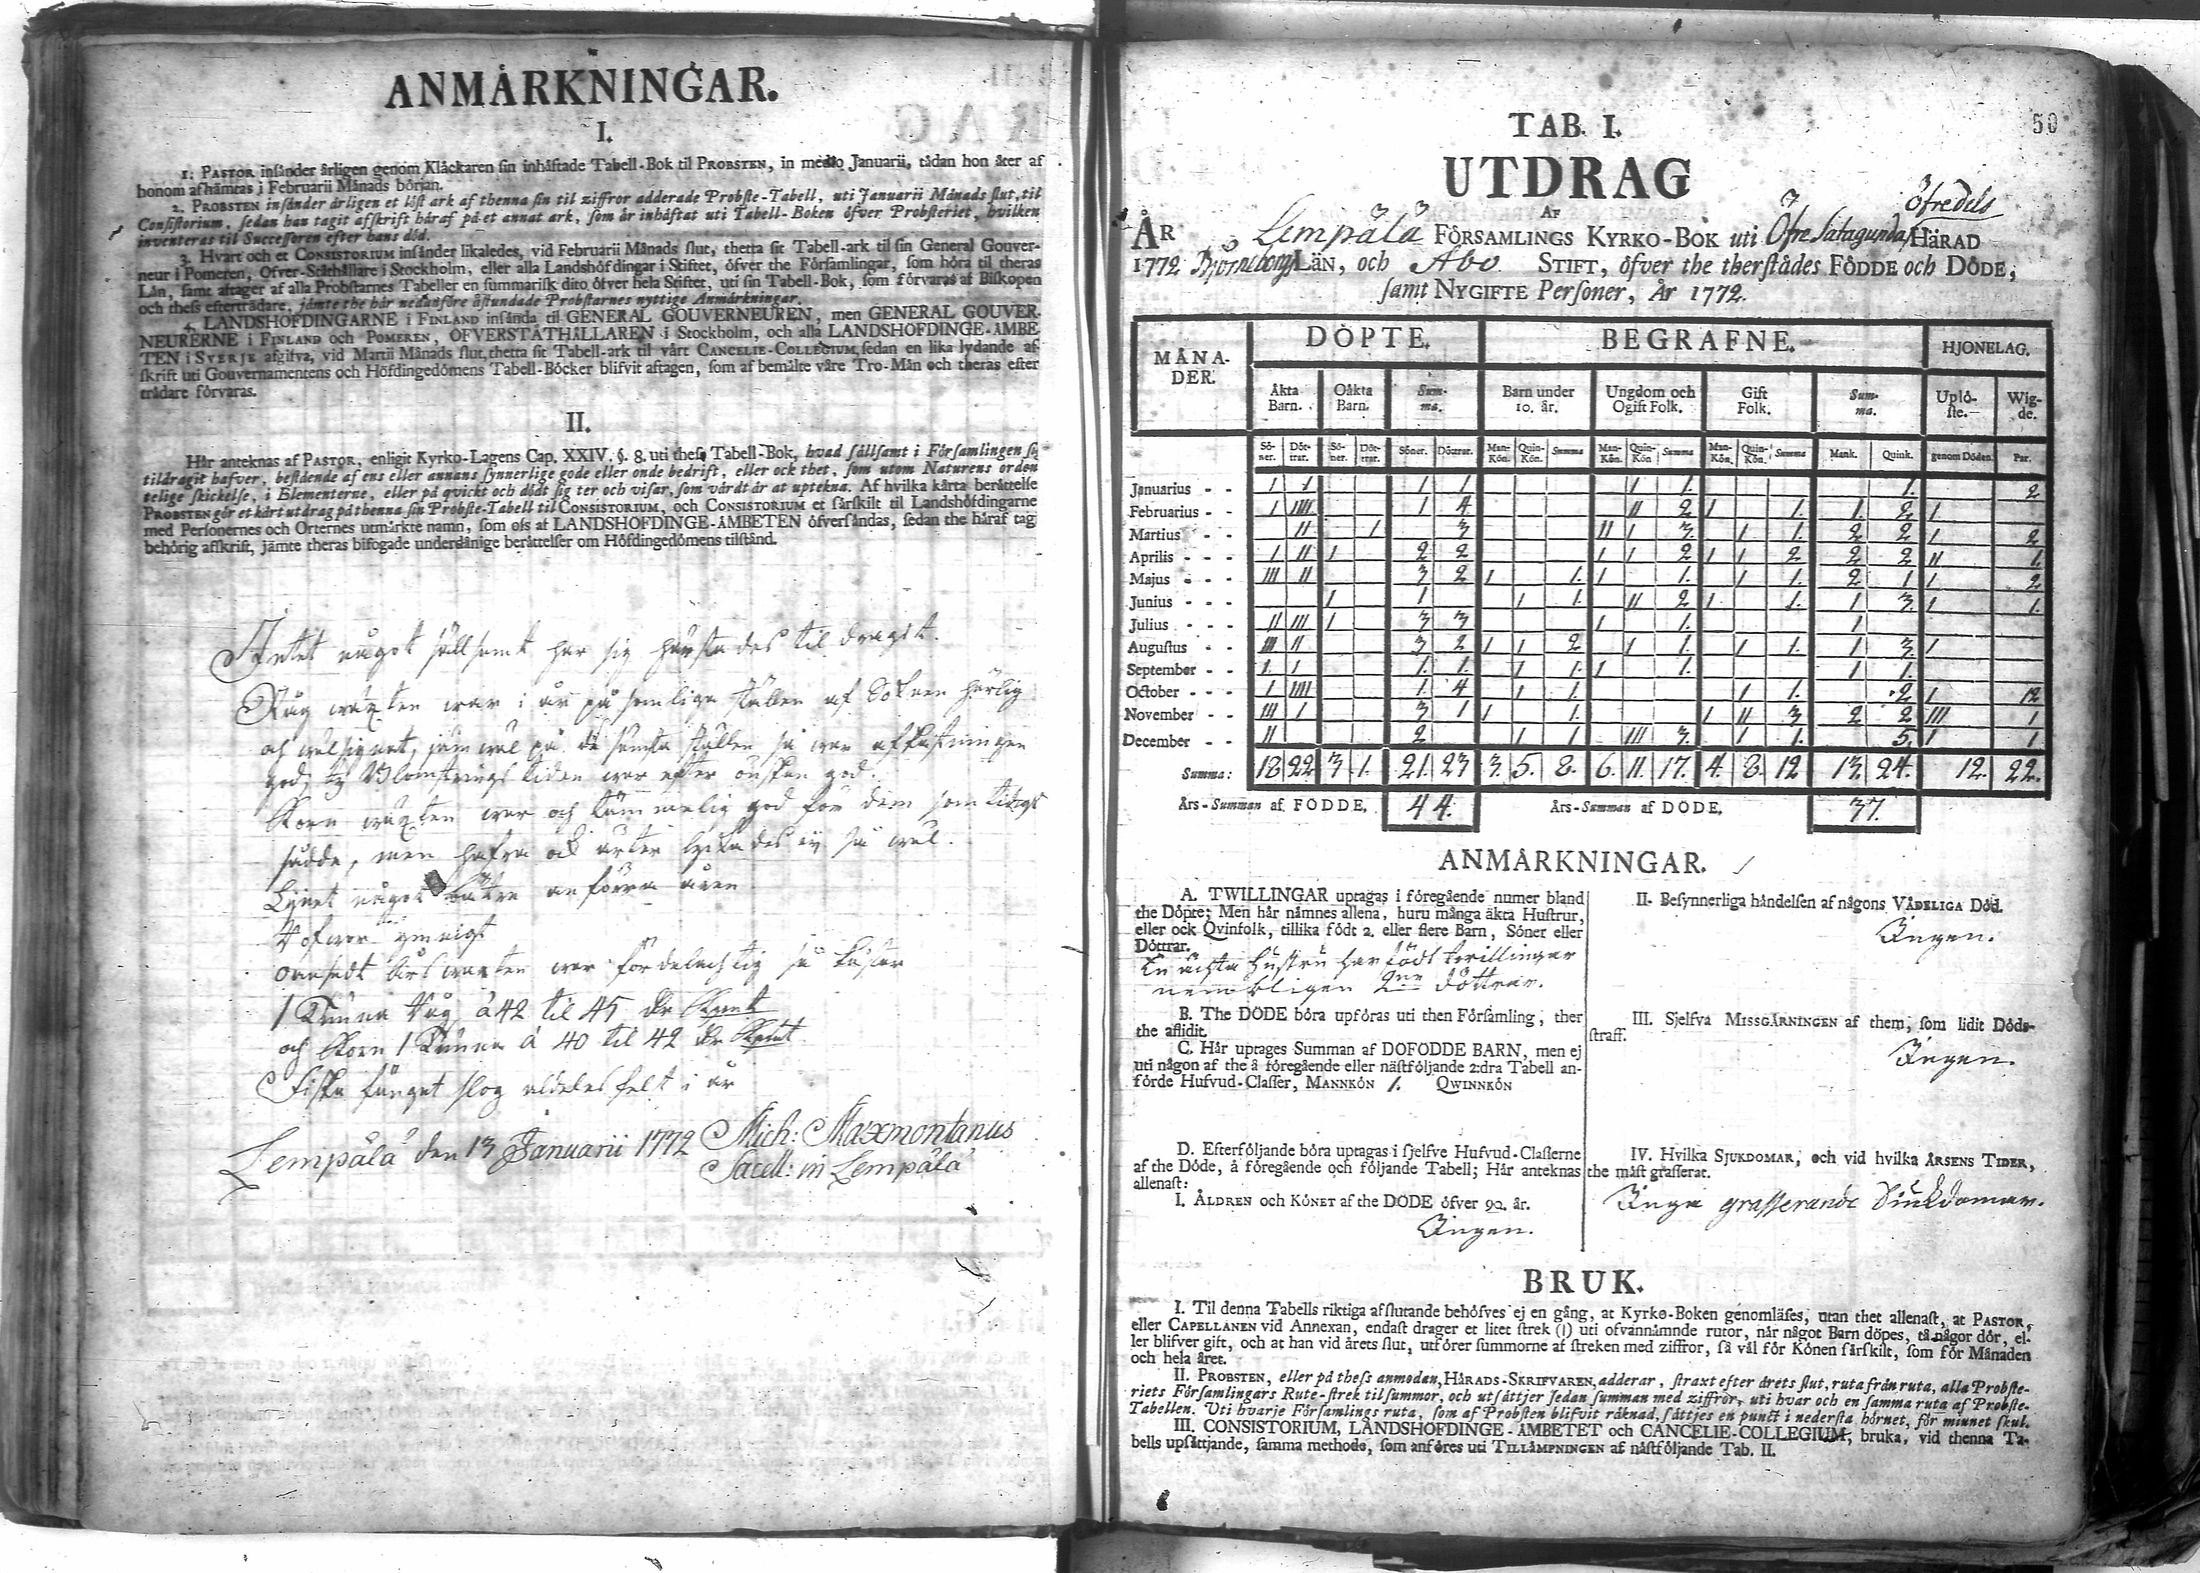 ANMÅRKNINGAR.
I.
1: PASTOR insånder årligen genom Klåckaren sin inhåftade Tabell-Bok til PROBSTEN, in medio Januarii, tådan hon åter af
honom afhåmtas i Februarii Månads början.
2. PROBSTEN insånder årligen et löst ark af thenna sin til ziffror adderade Probste-Tabell, uti Januarii Månads slut, til
Consistorium, sedan han tagit afskrift håraf på et annat ark, som år inhåftat uti Tabell-Boken öfver Probsteriet, hvilken
inventeras til Successoren efter hans död.
3. Hvart och et CONSISTORIUM insånder likaledes, vid Februarii Månads slut, thetta sit Tabell-ark til sin General Gouver-
neur i Pomeren, Ofver-Ståthållare i Stockholm, eller alla Landshöfdingar i Stiftet, öfver the Församlingar, som höra til theras
Lån, samt aftager af alla Probstarnes Tabeller en summarisk dito öfver hela Stiftet, uti sin Tabell-Bok, som förvaras af Biskopen
och thess eftertrådare, jåmte the hår nedanföre åstundade Probstarnes nyttige Anmårkningar.
4. LANDSHOFDINGARNE i FINLAND insånda til GENERAL GOUVERNEUREN, men GENERAL GOUVER-
NEURERNE i FINLAND och POMEREN, OFVERSTÅTHÅLLAREN i Stockholm, och alla LANDSHOFDINGE-ÅMBE
TEN i SVERJE afgifva, vid Martii Månads slut, thetta sit Tabell-ark til vårt CANCELIE-COLLEGIUM, sedan en lika lydande af
skrift uti Gouvernamentens och Höfdingedömens Tabell-Böcker blifvit aftagen, som af bemålte våre Tro-Mån och theras efter
trådare förvaras.
II.
Hår anteknas af PASTOR, enligit Kyrko-Lagens Cap. XXIV. §. 8. uti thess Tabell-Bok, hvad sållsamt i Församlingen sig
tildragit hafver, bestående af ens eller annans synnerlige gode eller onde bedrift, eller ock thet, som utom Naturens orden
telige skickelse, i Elementerne, eller på qvickt och dödt sig ter och visar, som vårdt år at uptekna. Af hvilka kårta beråttelse
PROBSTEN gör et kårt utdrag på thenna sin Probste-Tabell til CONSISTORIUM, och CONSISTORIUM et sårskilt til Landshöfdingarne
med Personernes och Orternes utmårkte namn, som oss af LANDSHOFDINGE-ÅMBETEN öfversåndas, sedan the håraf tag
behörig afskrift, jåmte theras bifogade underdånige beråttelser om Höfdingedömens tilstånd.
Intet något sällsamt har sig härstädes til dragit.
Råg wäxten war i år på somliga ställen af Soknen härlig
och wälsignat, jämwäl på de sämsta ställen så war afkastningen
god, ty Blomstrings tiden war efter önskan god.
Korn wäxten war och tämmelig god för dem som tidigt
sådde, men hafra och ärter lyckades ej så wäl.
Linet något bättre än förra åren
oansedt års wäxten war fördelachtig så kostar
1 Tunna Råg à 42 til 45 dr Kmt
och Korn 1 Tunna à 40 til 42 dr Kmt.
Fiske fänget slog aldeles felt i år
Lempälä den 13 Januarii 1772 Mich: Maxmontanus
Sacell: in Lempälä
50
TAB. I.
UTDRAG
AF
Öfredels
ÅR Lempälä FÖRSAMLINGS KYRKO-BOK uti Öfre Satagunda HÄRAD
1772 Björneborgs LÄN, och Åbo STIFT, öfver the therstådes FÖDDE och DÖDE,
samt NYGIFTE Personer, År 1772.
MÅNA-DER. DÖPTE. BEGRAFNE. HJONELAG.
Åkta Barn. Oåkta Barn. Summa. Barn under 10. år. Ungdom och Ogift Folk. Gift Folk. Summa. Uplö-ste. Wig-de.
Sö-ner. Döt-trar. Sö-ner. Döt-trar. Söner. Döttrar. Man-Kön. Quin-Kön. Summa Man-Kön. Quin-Kön. Summa Man-Kön. Quin-Kön. Summa Mank. Quink. genom Döden. Par.
Januarius - - I I 1 1 I 1. 1. 2
Februarius - - I IIII 1 4 II 2 I 1. 1. 2. I
Martius - - II I 3 II I 3. I 1. 2 2 I 2
Aprilis - - - I II I 2 2 I I 2 I I 2 2 2 II 1.
Majus - - - III II 3 2 I 1. I 1. I 1. 2 1 I 2
Junius - - - I 1 I 1. II 2 I 1. 1 3. I 1.
Julius - - - II III I 3 3 I 1. 1
Augustus - - III II 3 2 I I 2 I 1. I 1. 1 3. I
September - - I I 1. 1. I 1. I 1. 1 1.
October - - - I IIII 1. 4 I 1. I 1. 2 I 12
November - - III I 3 1 I 1. I II 3 2 2 III 1
December - - II 2 I 1 III 3. I 1. 5. I 1
Summa: 18 22. 3 1. 21. 23 3. 5. 8. 6. 11. 17. 4. 8. 12 13. 24. 12. 22.
Års-Summan af FÖDDE, 44. Års-Summan af DÖDE, 37.
ANMÅRKNINGAR.
A. TWILLINGAR uptagas i föregående numer bland
the Döpte; Men hår nåmnes allena, huru många äkta Hustrur,
eller ock Qvinfolk, tillika födt 2. eller flere Barn, Söner eller
Döttrar.
En ächta Hustru har födt twillingar
nembligen 2ne döttrar.
B. The DÖDE böra upföras uti then Församling, ther
the aflidit.
C. Hår uptages Summan af DÖFÖDDE BARN, men ej
uti någon af the å föregående eller nåstföljande 2:dra Tabell an-
förde Hufvud-Classer, MANNKÖN 1. QWINNKÖN
D. Efterföljande böra uptagas i sjelfve Hufvud-Classerne
af the Döde, å föregående och följande Tabell; Hår anteknas
allenast:
I. ÅLDREN och KÖNET af the DÖDE öfver 90. år.
Ingen.
II. Besynnerliga håndelsen af någons VÅDELIGA Död.
Ingen.
III. Sjelfva MISSGÅRNINGEN af them, som lidit Döds-
straff.
Ingen.
IV. Hvilka SJUKDOMAR, och vid hvilka ÅRSENS TIDER,
the måst grasserat.
Inga grasserande Siukdomar.
BRUK.
I. Til denna Tabells riktiga afslutande behöfves ej en gång, at Kyrko-Boken genomläses, utan thet allenast, at PASTOR,
eller CAPELLANEN vid Annexan, endast drager et litet strek (|) uti ofvannåmnde rutor, når något Barn döpes, tå någor dör, el-
ler blifver gift, och at han vid årets slut, utförer summorne af streken med ziffror, så vål för Könen sårskilt, som för Månaden
och hela året.
II. PROBSTEN, eller på thess anmodan, HÅRADS-SKRIFVAREN, adderar, straxt efter årets slut, ruta från ruta, alla Probste-
riets Församlingars Rute-strek til summor, och utsåttjer sedan summan med ziffror, uti hvar och en samma ruta af Probste-
Tabellen. Uti hvarje Församlings ruta, som af Probsten blifvit råknad, såttjes en punct i nedersta hörnet, för minnet skul.
III. CONSISTORIUM, LANDSHÖFDINGE-ÅMBETET och CANCELIE-COLLEGIUM, bruka, vid thenna Ta-
bells upsåttjande, samma methode, som anföres uti TILLÅMPNINGEN af nåstföljande Tab. II.